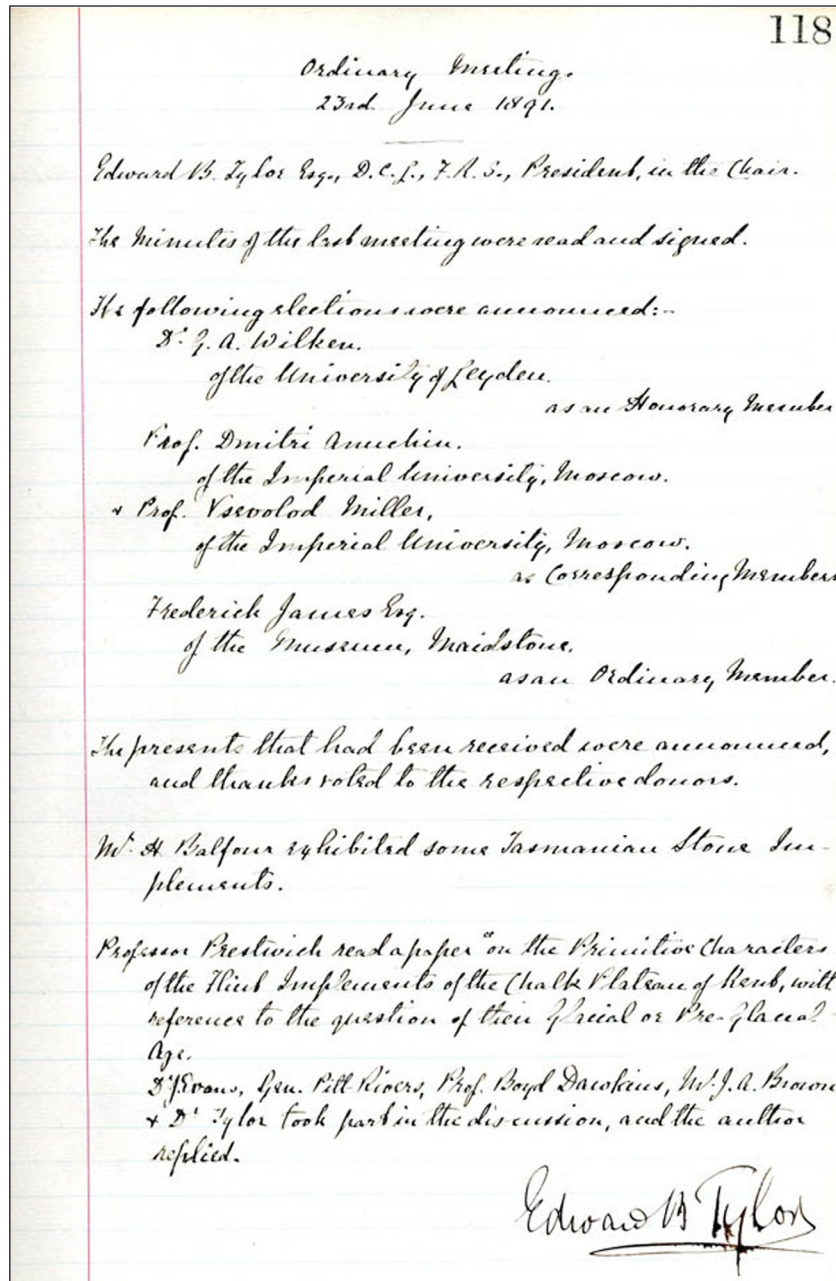 118
Ordinary Meeting.
23rd June 1891.
Edward B. Tylor Esq., D.C.L., F.R.S., President, in the Chair.
The Minutes of the last meeting were read and signed.
The following elections were announced:-
Dr. G. A. Wilken.
of the University of Leyden.
as an Honorary Member
Prof. Dmitri Anuchin.
of the Imperial University, Moscow.
& Prof. Vsevolod Miller,
of the Imperial University, Moscow.
as Corresponding Members
Frederick James Esq.
of the Museum, Maidstone.
as an Ordinary Member.
The presents that had been received were announced,
and thanks voted to the respective donors.
Mr. H. Balfour exhibited some Tasmanian Stone Im-
plements.
Professor Prestwich read a paper "on the Primitive Characters
of the Flint Implements of the Chalk Plateau of Kent, with
reference to the question of their Glacial or Pre-Glacial
Age.
Dr J. Evans, Gen. Pitt-Rivers, Prof. Boyd Dawkins, Mr. J. A. Brown
& Dr Tylor took part in the discussion, and the author
replied.
Edward B Tylor